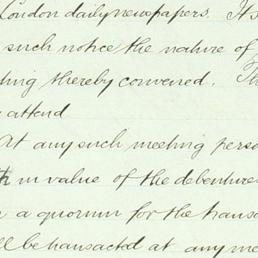 London daily newspapers. It s
such notice the nature of
ting thereby convened. Th
attend
At any such meeting perso
th in value of the debenture
a quorum for the transa
ll be transacted at any me